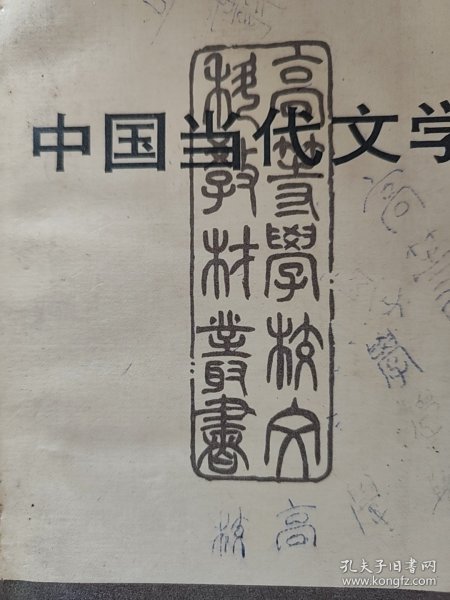 中国当代文学
高等学校文
科教材丛書
學
校 高
孔夫子旧书网
www.kongfz.com